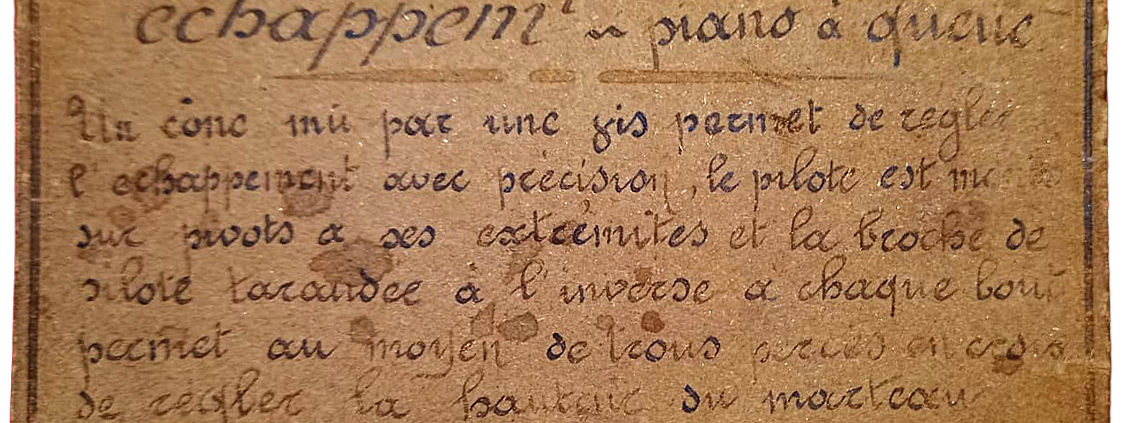 échappemt piano à queue
Un cône mû par une vis permet de régler
l'échappement avec précision, le pilote est monté
sur pivots à ses extrémités et la broche de
pilote taraudée à l'inverse à chaque bout
permet au moyen de trous percés en croix
de régler la hauteur du marteau